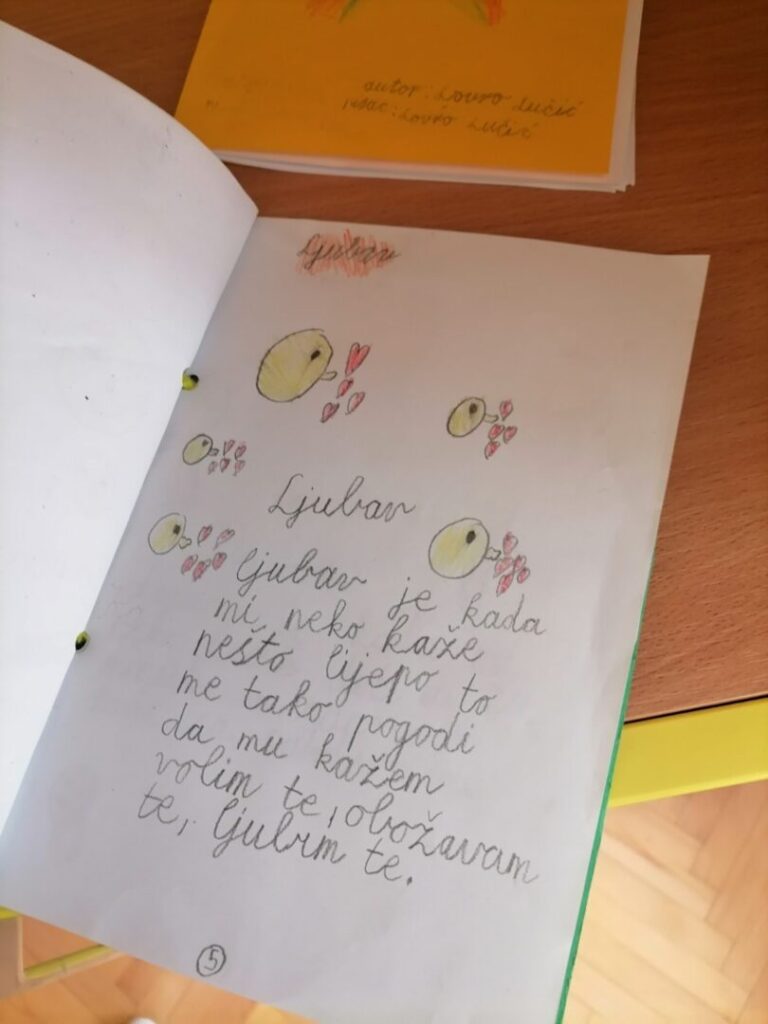 autor: Lovro Lučić
pisac: Lovro Lučić
Ljubav
Ljubav
ljubav je kada
mi neko kaže
nešto lijepo to
me tako pogodi
da mu kažem
volim te, obožavam
te, ljubim te.
5